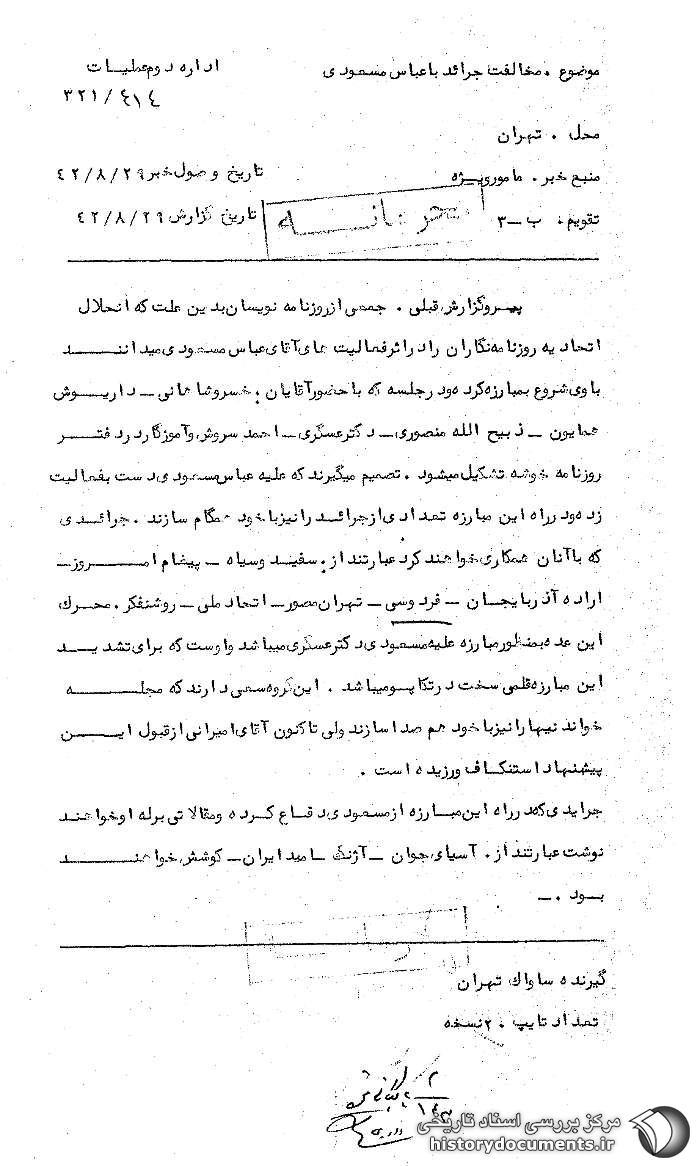 موضوع . مخالفت جرائد با عباس مسعودی
اداره دوم عملیات
۳۲۱/۴۱۴
محل . تهران
منبع خبر . مامور ویژه
تاریخ وصول خبر ۴۲/۸/۲۹
تقویم . ب -۳
محرمانه
تاریخ گزارش ۴۲/۸/۲۹
پیرو گزارش قبلی . جمعی از روزنامه نویسان بدین علت که انحلال
اتحادیه روزنامه نگاران را در اثر فعالیت های آقای عباس مسعودی میدانند
با وی شروع بمبارزه کرده و در جلسه که با حضور آقایان : خسرو شاهانی - داریوش
همایون - ذبیح الله منصوری - دکتر عسگری - احمد سروش و آموزگار در دفتر
روزنامه خوشه تشکیل میشود . تصمیم میگیرند که علیه عباس مسعودی دست بفعالیت
زده و در راه این مبارزه تعدادی از جرائد را نیز با خود همگام سازند . جرائدی
که با آنان همکاری خواهند کرد عبارتند از : سفید و سیاه - پیغام امروز -
اراده آذربایجان - فردوسی - تهران مصور - اتحاد ملی - روشنفکر . محرک
این عده بمنظور مبارزه علیه مسعودی دکتر عسگری میباشد و اوست که برای تشدید
این مبارزه قلمی سخت در تکاپو میباشد . این گروه سعی دارند که مجله
خواندنیها را نیز با خود هم صدا سازند ولی تاکنون آقای امیرانی از قبول این
پیشنهاد استنکاف ورزیده است .
جرایدی که در راه این مبارزه از مسعودی دفاع کرده و مقالاتی بر له او خواهند
نوشت عبارتند از . آسیای جوان - آژنگ - امید ایران - کوشش خواهند
بود . -
گیرنده ساواک تهران
تعداد تایپ . ۲ نسخه
مرکز بررسی اسناد تاریخی
historydocuments.ir